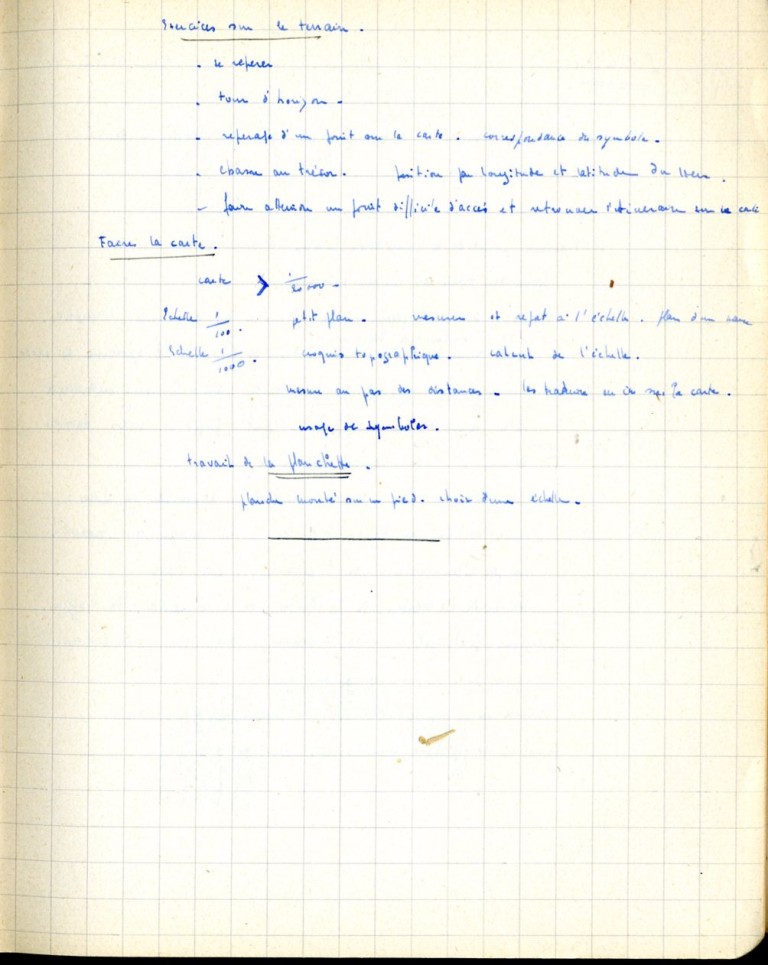 Exercices sur le terrain.
. se repérer
. tour d'horizon -
. repérage d'un point sur la carte. correspondance du symbole.
. chasse au trésor. position par longitude et latitude du lieu.
- faire atteindre un point difficile d'accès et retrouver l'itinéraire sur la carte
Faire la carte.
carte > 1/20 000 -
Echelle 1/100. petit plan. mesures et report à l'échelle. plan d'un
Echelle 1/1000. croquis topographique. calcul de l'échelle.
mesure au pas des distances - les traduire en cm sur la carte.
usage de symboles.
travail de la planchette.
planche montée sur un pied. choix d'une échelle -